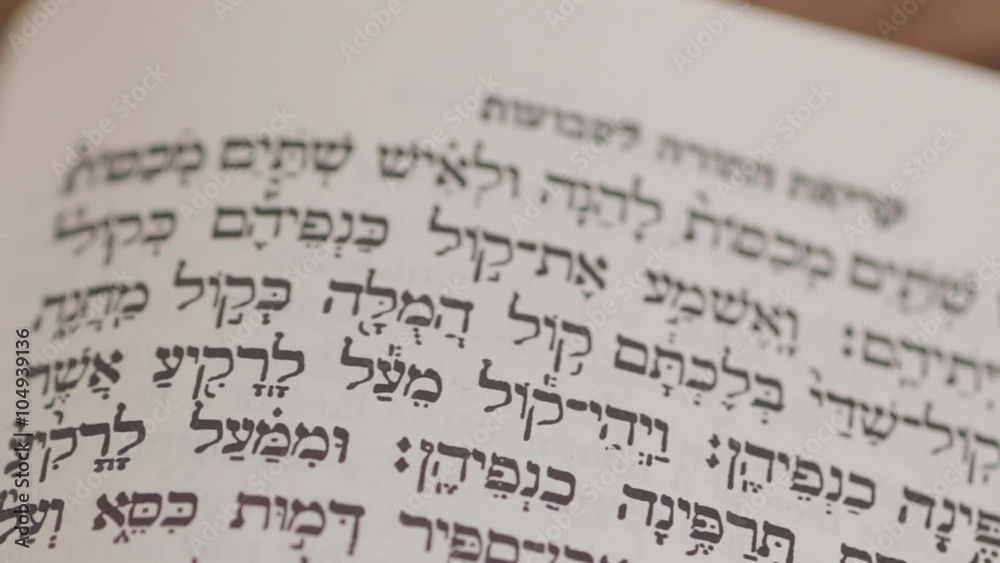 קריאת התורה לשבועות
שְׁתַּ֤יִם מְכַסּוֹת֙ לָהֵ֔נָּה וּלְאִ֗ישׁ שְׁתַּ֤יִם מְכַסּוֹת֙
וָאֶשְׁמַ֣ע אֶת־ק֣וֹל כַּנְפֵיהֶ֡ם כְּקוֹל֩
כְקוֹל־שַׁדַּי֙ בְּלֶכְתָּ֔ם ק֥וֹל הֲמֻלָּ֖ה כְּק֣וֹל מַחֲנֶ֑ה
כַנְפֵיהֶֽן׃ וַֽיְהִי־ק֕וֹל מֵעַ֕ל לָרָקִ֖יעַ אֲשֶׁ֣ר
תְּרַפֶּ֥ינָה כַנְפֵיהֶֽן׃ וּמִמַּ֗עַל לָרָקִ֙יעַ֙
אֶֽבֶן־סַפִּ֖יר דְּמ֣וּת כִּסֵּ֑א וְעַל֙
Adobe Stock | #104939136